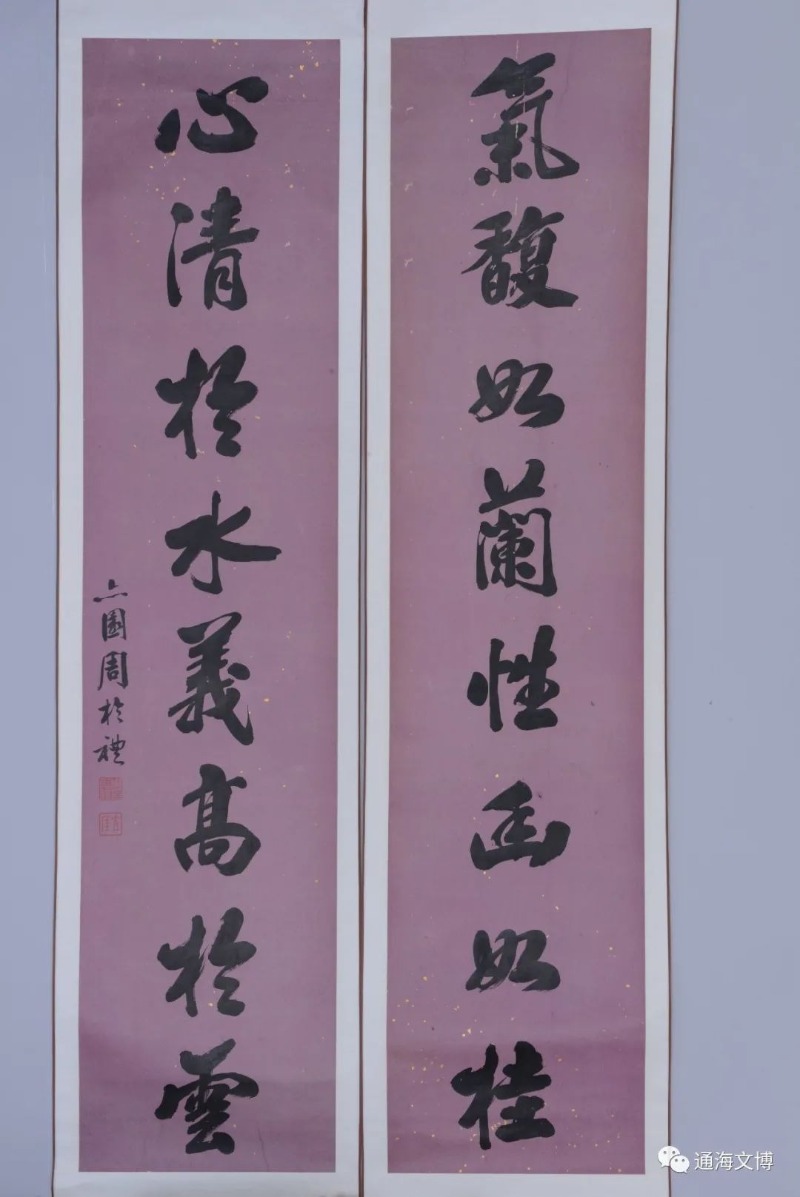 氣馥如蘭性幽如桂
心清於水義高於雲
亦園周於禮
通海文博